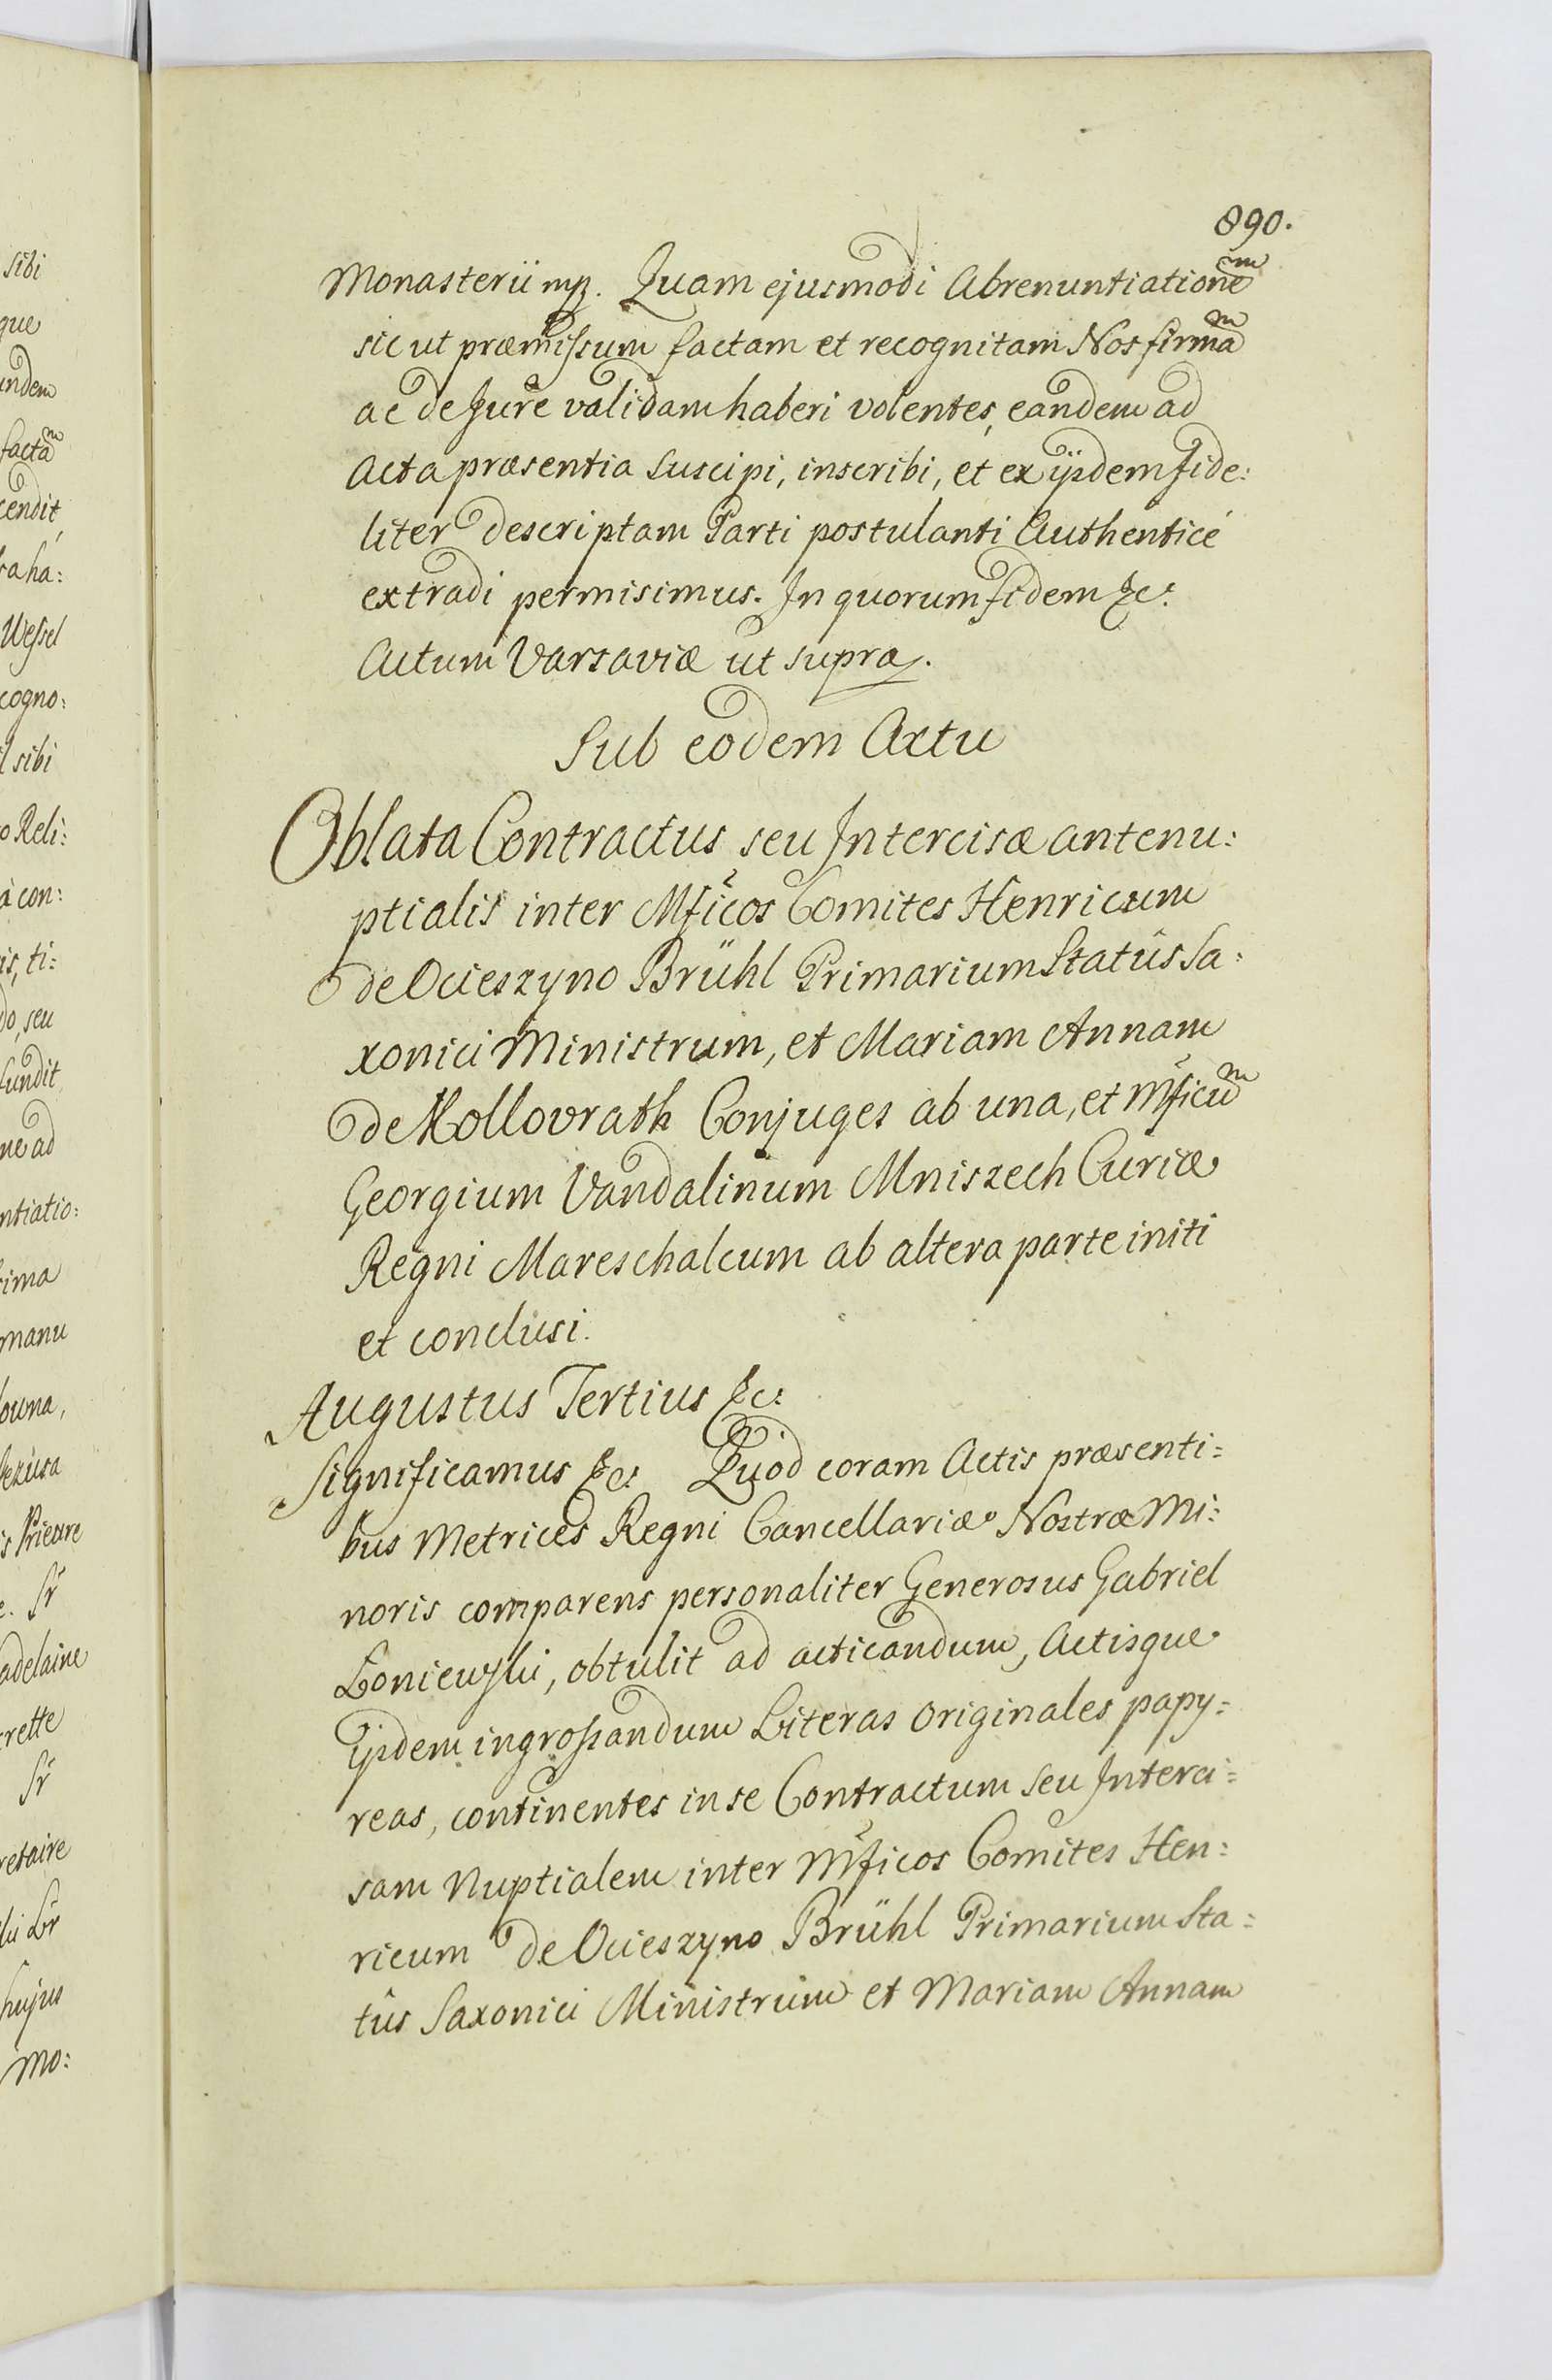 890.
Monasterii mp. Quam ejusmodi Abrenuntiatione͠m
sic ut præmissum factam et recognitam Nos firma͠m
ac de Jure validam haberi volentes, eandem ad
Acta præsentia suscipi, inscribi, et ex ijsdem fide:
liter descriptam Parti postulanti Authenticè
extradi permisimus. In quorum fidem &c.
Actum Varsaviæ ut supra.
Sub eodem Actu
Oblata Contractus seu Intercisæ antenu:
ptialis inter Mficos Comites Henricum
de Ocieszyno Brühl Primarium Statûs Sa:
xonici Ministrum, et Mariam Annam
de Kollovrath Conjuges ab una, et Mficu͠m
Georgium Vandalinum Mniszech Curiæ
Regni Mareschalcum ab altera parte initi
et conclusi.
Augustus Tertius &c.
Significamus &c. Quod coram Actis præsenti=
bus Metrices Regni Cancellariæ Nostræ Mi:
noris comparens personaliter Generosus Gabriel
Łoniewski, obtulit ad acticandum, Actisque
ijsdem ingrossandum Literas Originales papy=
reas, continentes in se Contractum seu Interci=
sam Nuptialem inter Mficos Comites Hen:
ricum de Ocieszyno Brühl Primarium Sta=
tûs Saxonici Ministrum et Mariam Annam
sibi
que
undem
cendit
Wessel
cogno:
sibi
Reli:
con:
ti=
seu
ad
ntiatio:
manu
Prieure
Sr
adelaine
rette
Sr
Sr
hujus
Mo: